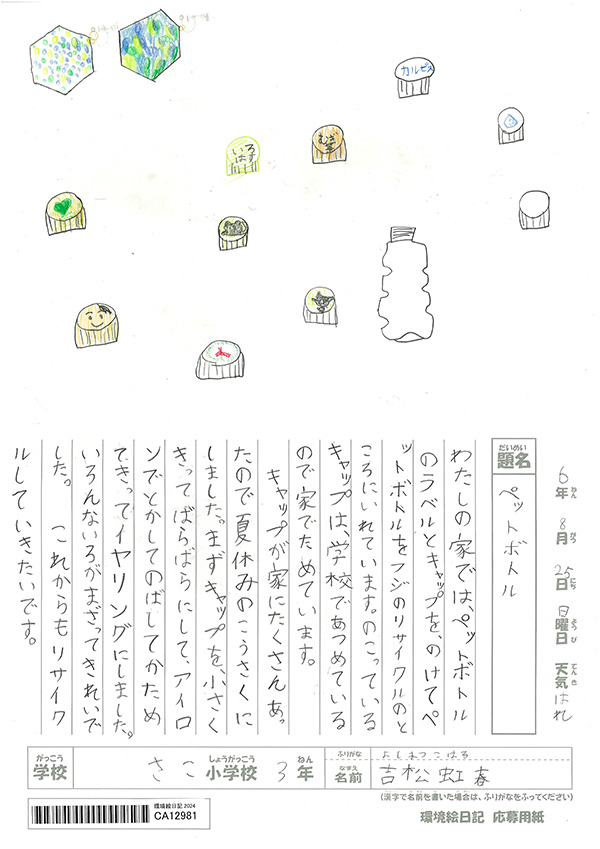 カルピス
いろ
はす
むぎ
茶
6年 8月 25日 日曜日 天気 はれ
ねん がつ にち ようび てんき
だいめい
題名
ペットボトル
わたしの家では、ペットボトル
のラベルとキャップを、のけてペ
ットボトルをフジのリサイクルのと
ころにいれています。のこっている
キャップは、学校であつめている
ので家でためています。
キャップが家にたくさんあっ
たので夏休みのこうさくに
しました。まずキャップを、小さく
きってばらばらにして、アイロ
ンでとかしてのばしてかため
てきってイヤリングにしました。
いろんないろがまざってきれいで
した。 これからもリサイク
ルしていきたいです。
がっこう
学校
さこ
しょうがっこう
小学校
3
ねん
年
ふりがな
よしまつこはる
なまえ
名前
吉松虹春
(漢字で名前を書いた場合は、ふりがなをふってください)
環境絵日記 2024
CA12981
環境絵日記 応募用紙